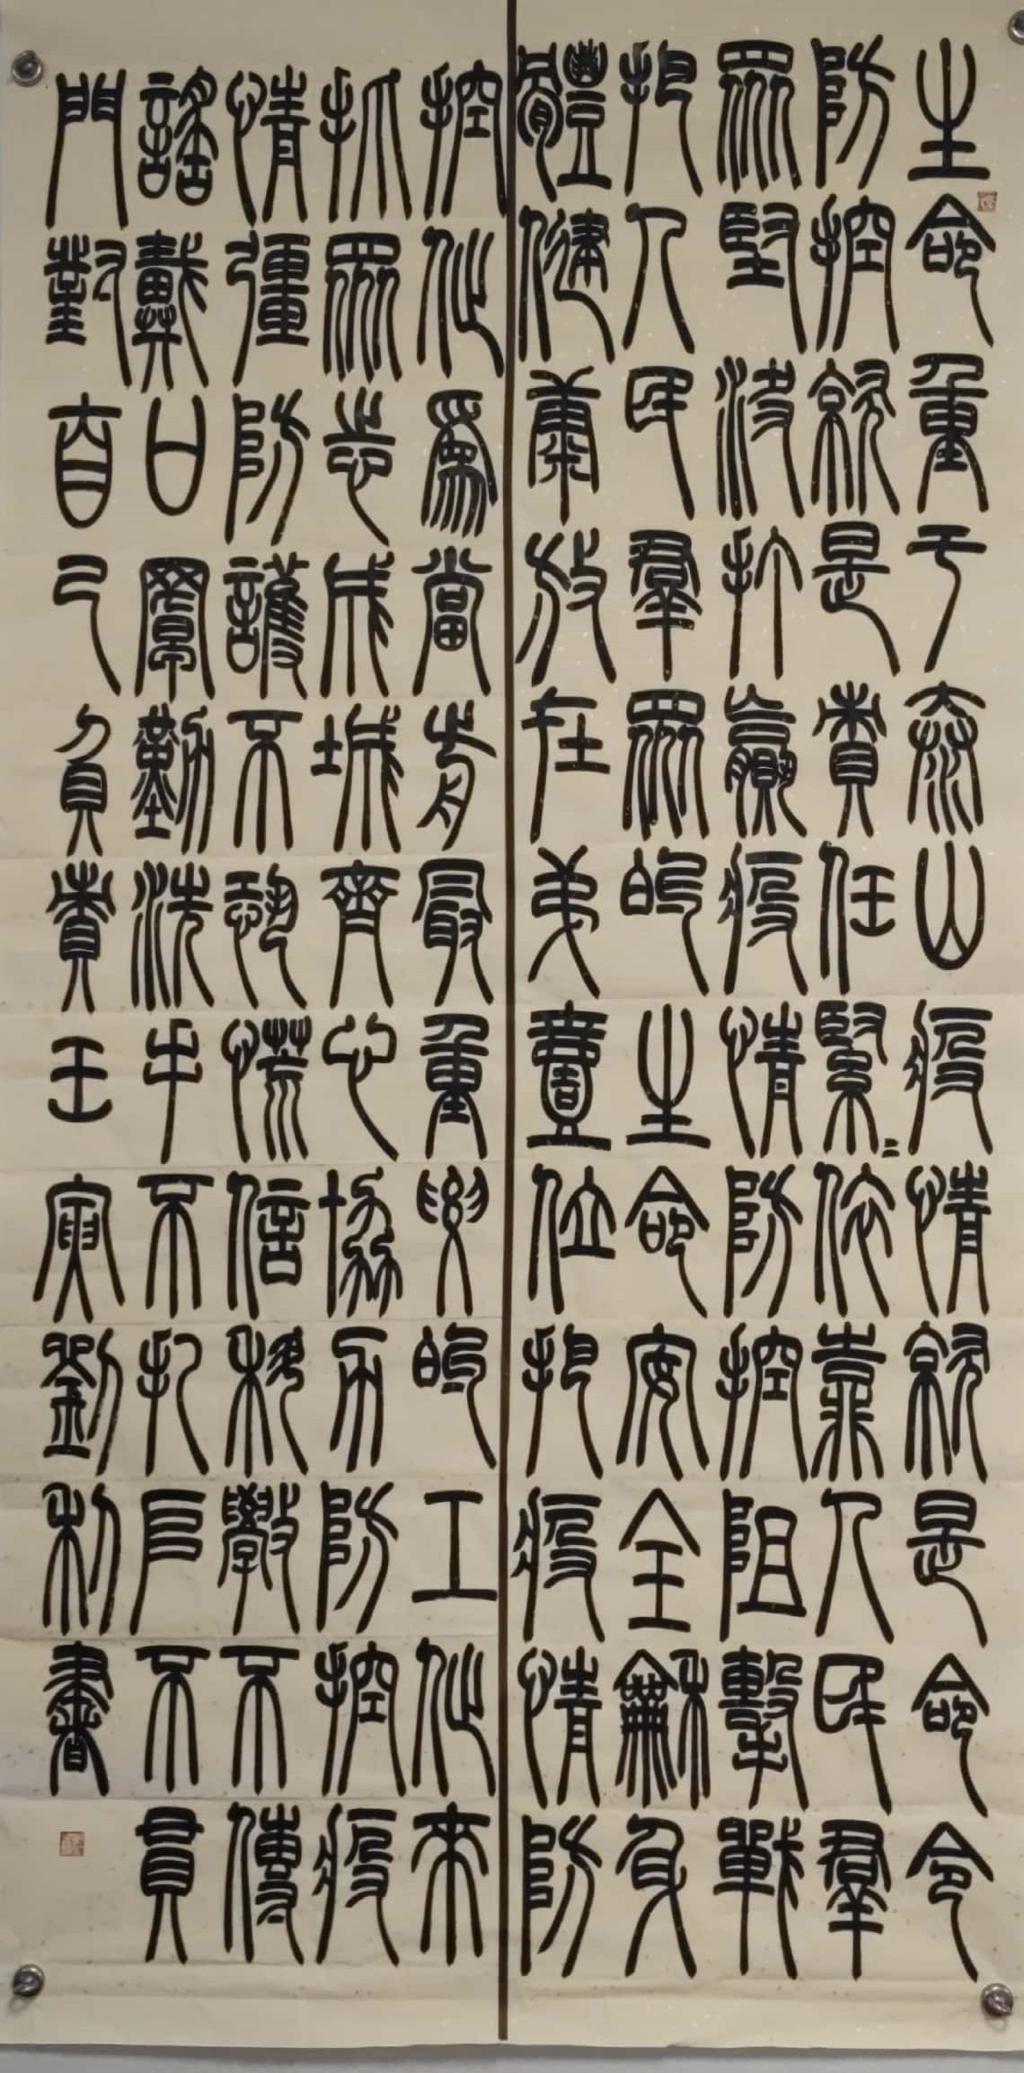 生命重于泰山疫情就是命令
防控就是責任緊〻依靠人民群
眾堅決打贏疫情防控阻擊戰
把人民群眾的生命安全龢身
體健康放在弟壹位把疫情防
控作為當前最重要的工作來
抓眾志成城齊心協力防控疫
情彊防護不恐慌信科學不傳
謠戴口罩勤洗手不扎𠂤不貫
門對自己負責壬寅劉利書